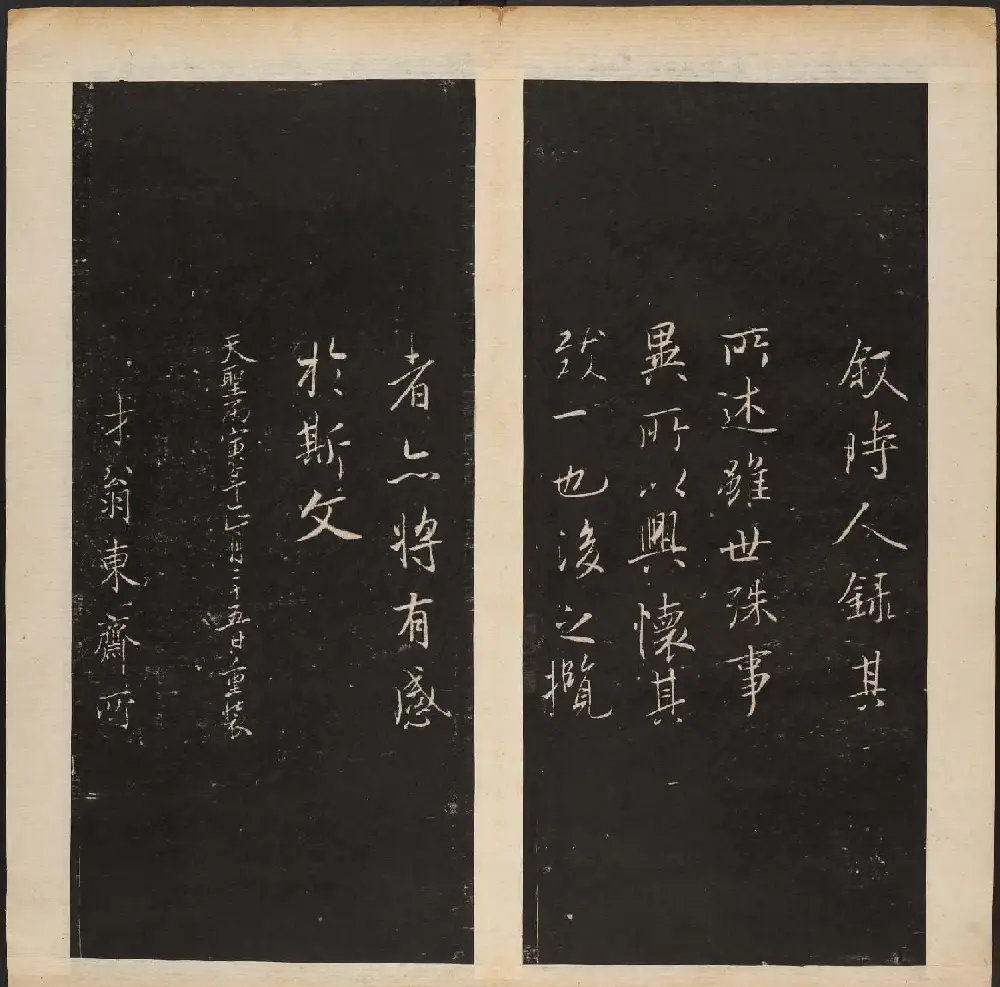 叙時人録其
所述雖世殊事
異所以興懷其
致一也後之攬
者亦將有感
於斯文
天聖丙寅年正月二十五日重裝
才翁東齋所